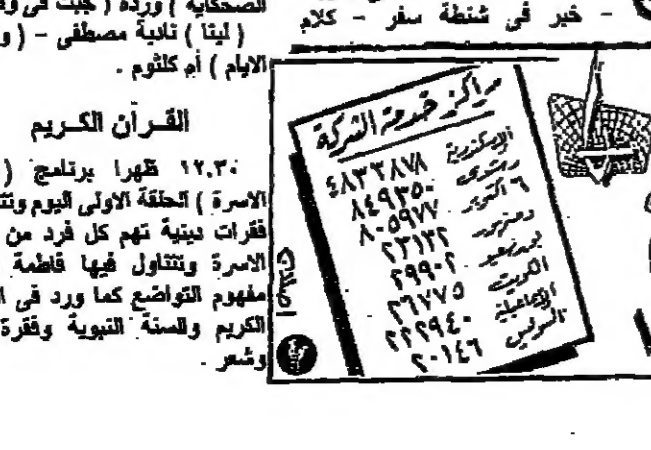 - خبر فى شنطة سفر - كلام
مراكز خدمة الشركة
الإسكندرية ٤٨٣٣٨٧٨
٨٤٩٣٥٠
٦ أكتوبر ٨٠٥٩٧٧
دمنهور ٢٣١٣٢
بورسعيد ٢٩٩٠٢
الكويت ٢٦٧٧٥
الإسماعيلية ٢٢٢٩٤٠
السويس ٢٠١٤٦
إعلان
الضحكاية ) وردة ( جيت فى
( لينا ) نادية مصطفى - (
الايام ) أم كلثوم .
القرآن الكريم
١٢,٣٠ ظهرا برنامج (
الاسرة ) الحلقة الاولى اليوم
فقرات دينية تهم كل فرد من
الاسرة وتتناول فيها فاطمة
مفهوم التواضع كما ورد فى
الكريم وللسنة النبوية وفقرة
وشعر .